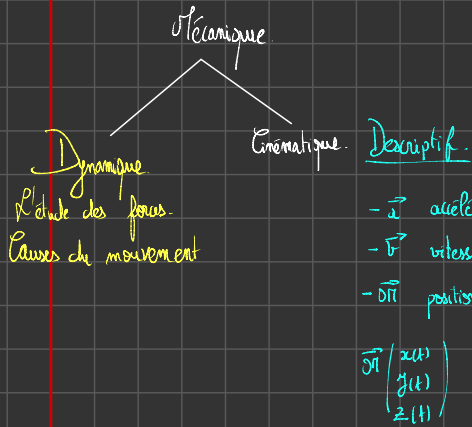 Mécanique
Dynamique
L'étude des forces.
Causes du mouvement
Cinématique.
Descriptif.
- a⃗ accélé
- v⃗ vitess
- OM⃗ position
OM⃗ ( x(t)
y(t)
z(t) )